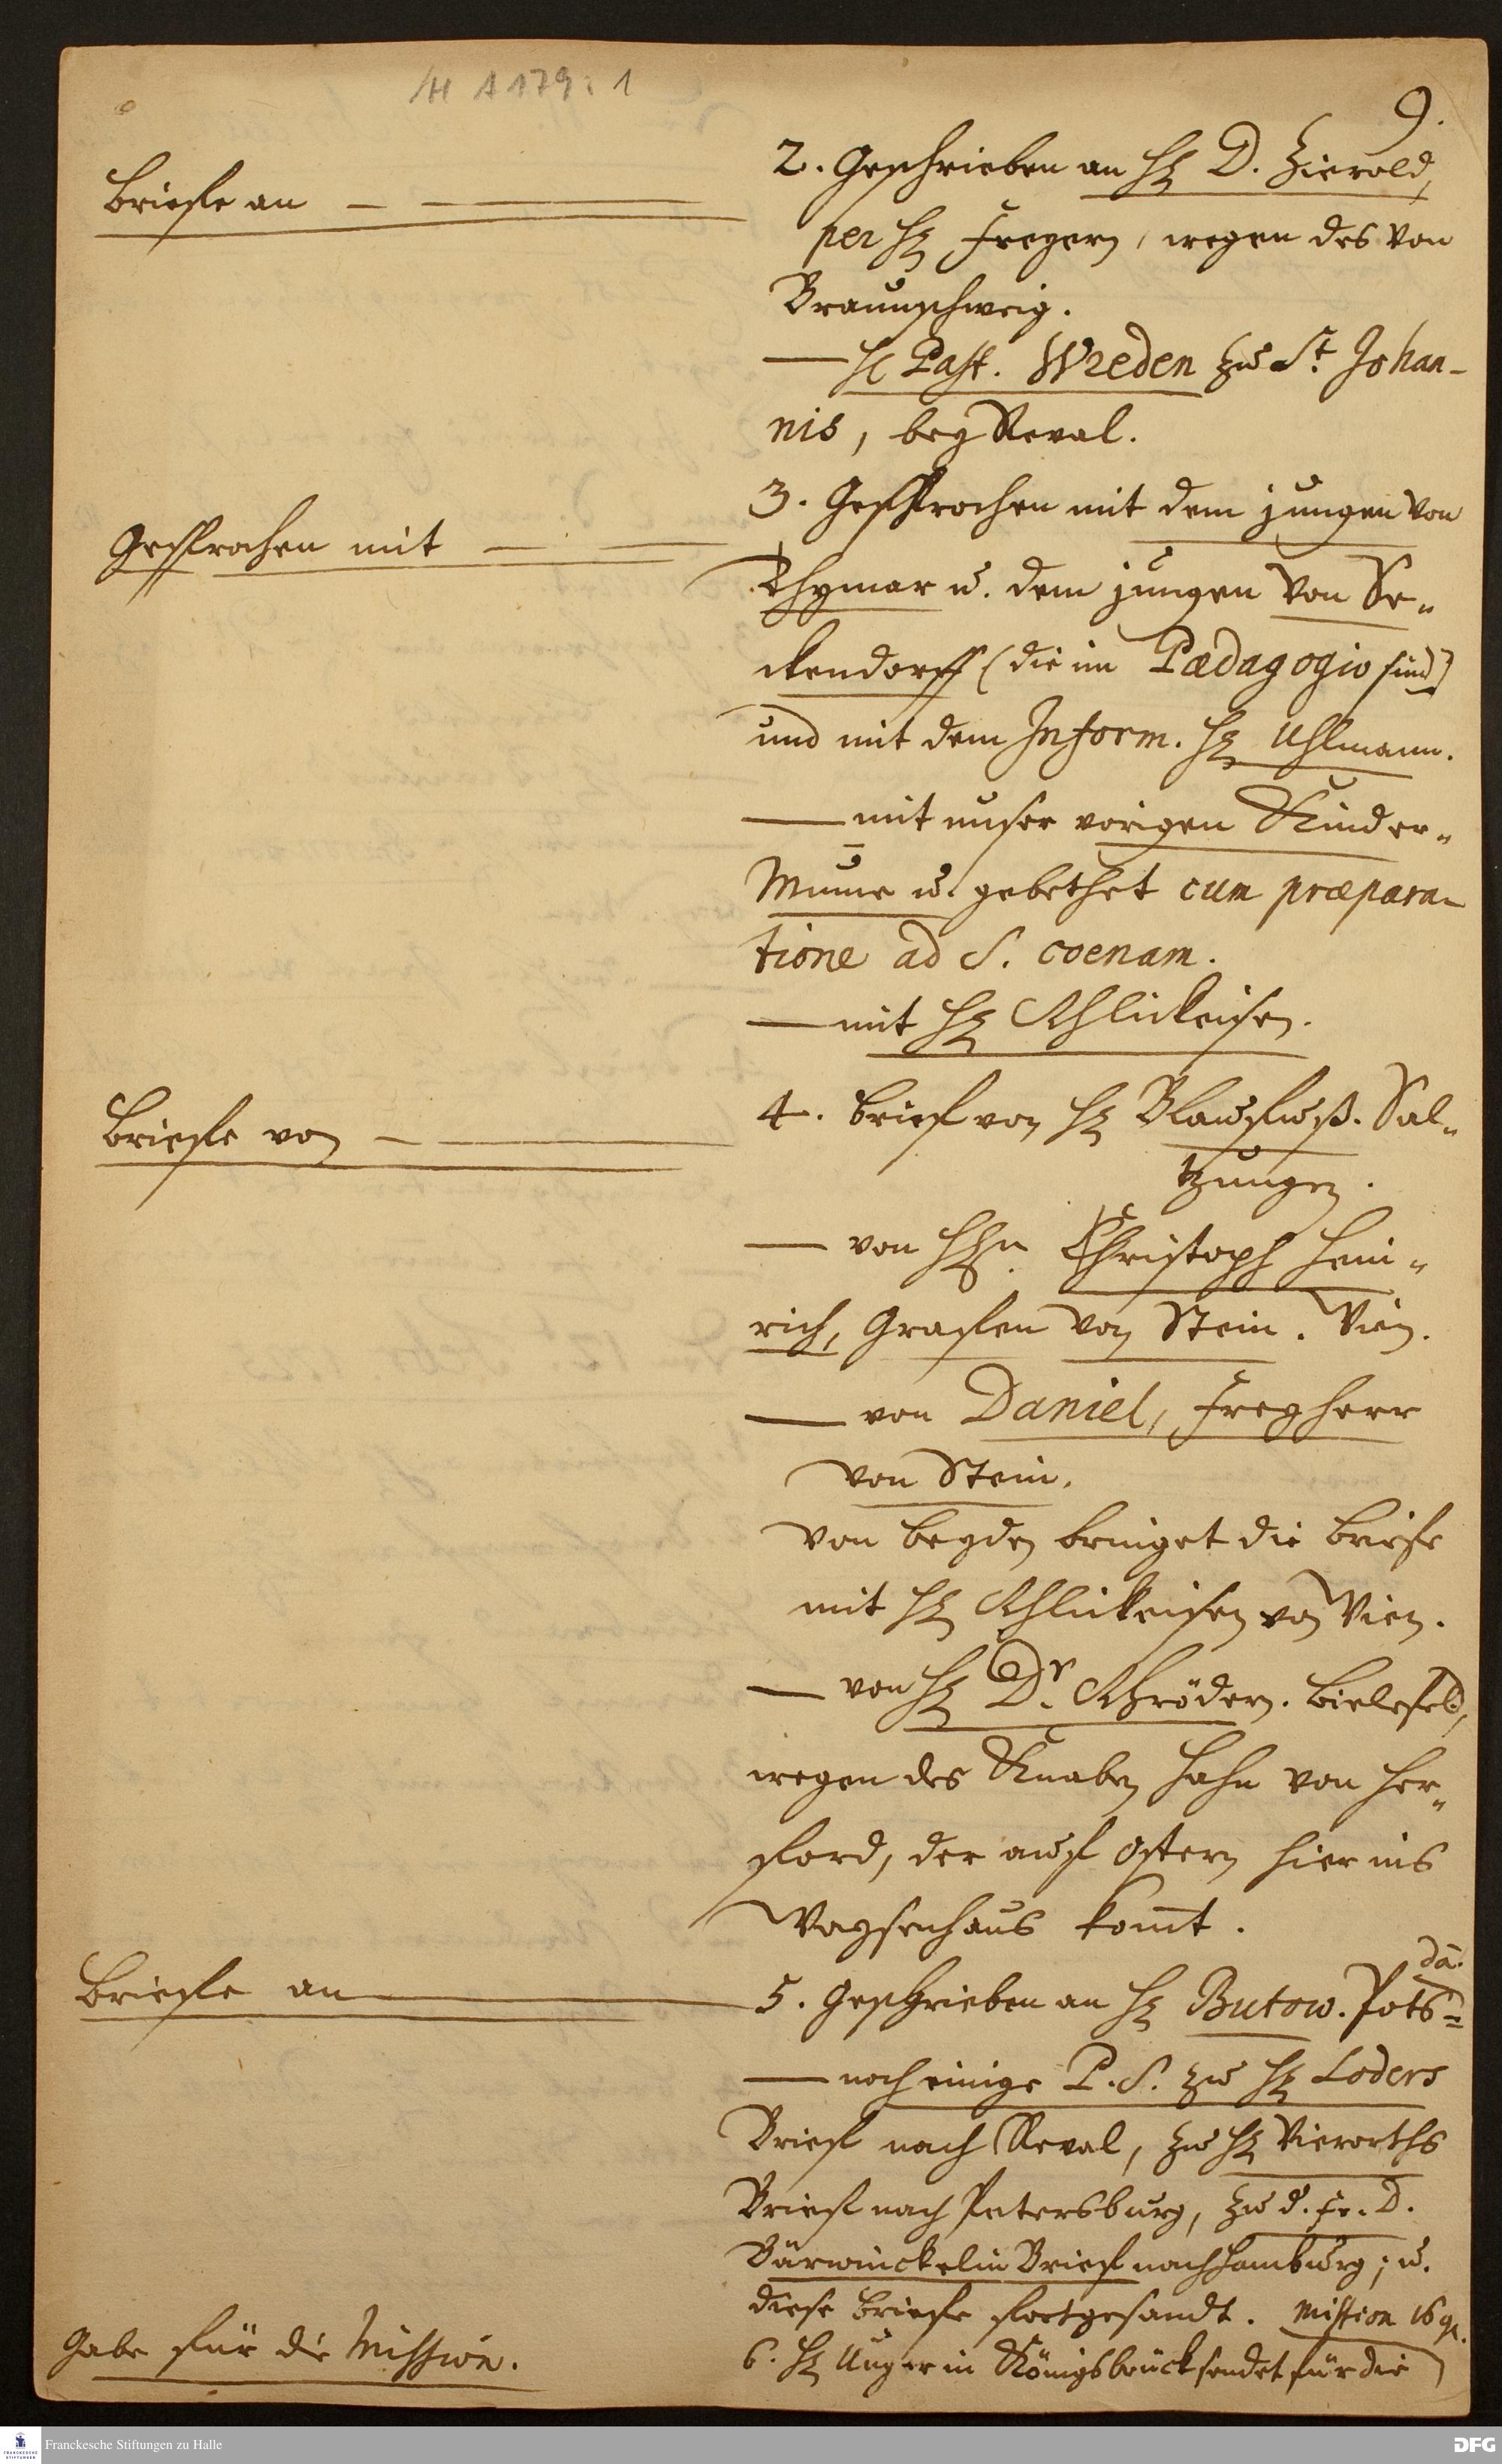 H A 179 : 1
9.
Briefe an — —
2. Geschrieben an H. D. Zierold,
per H. Freyern, wegen des von
Braunschweig.
— H Past. Wreden zu St. Johan-
nis, bey Reval.
Gesprochen mit — —
3. Gesprochen mit dem jungen von
Thymar u. dem jungen von Se-
ckendorff (die im Pædagogio sind)
und mit dem Inform. H. Uhlmann.
— mit unser vorigen Kinder-
Mume u. gebethet cum præpara-
tione ad S. coenam.
— mit H. Schlickeisen.
Briefe von — —
4. Brief von H. Blaufuß. Sal-
tzungen.
— von HErn. Christoph Hein-
rich, Grafen von Stein. Wien.
— von Daniel, Freyherr
von Stein.
von beyden bringet die Briefe
mit H. Schlickeisen von Wien.
— von H. Dr. Schrödern. Bielefeld,
wegen des Knaben Hahn von Her-
ford, der auf Ostern hier ins
Waysenhaus komt.
Briefe an —
5. Geschrieben an H. Butow. Pots-
da.
— noch einige P. S. zu H. Loders
Brief nach Reval, zu H. Vierorths
Brief nach Petersburg, zu d. Fr. D.
Bärwinckelin Brief nach Hamburg; u.
diese Briefe fortgesandt. Mission 16 gr.
Gabe für die Mission.
6. H. Unger in Königsbrück sendet für die
Franckesche Stiftungen zu Halle
DFG